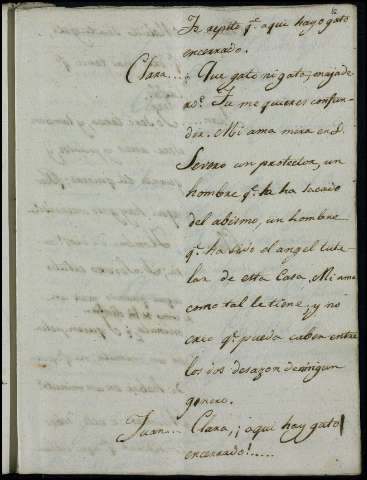 Te repito q.e aqui hay gato
encerrado.
Clara.... Que gato ni gato; majade
ro. Tu me quieres confun-
dir. Mi ama mira en S.
Severo un protector, un
hombre q.e la ha sacado
del abismo, un hombre
q.e ha sido el angel tute-
lar de esta Casa. Mi ama
como tal le tiene, y no
cree q.e pueda caber entre
los dos desazon de ningun
genero.
Juan.... Clara, ¡aqui hay gato
encerrado!.....